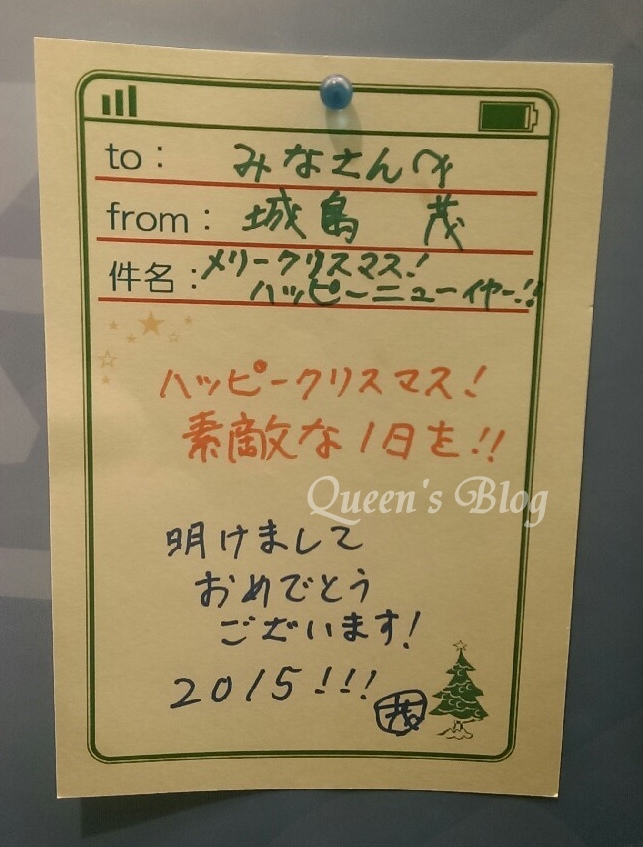 to： みなさんへ
from： 城島 茂
件名：メリークリスマス！
ハッピーニューイヤー!!
ハッピークリスマス！
素敵な1日を!!
Queen's Blog
明けまして
おめでとう
ございます！
2015!!!
茂